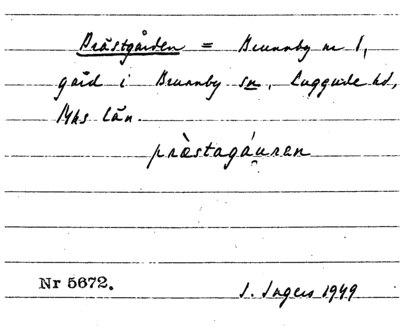 Prästgården = Brunnby nr 1,
gård i Brunnby sn, Luggude hd,
Mhs län.
prästagá̯uran
Nr 5672.
I. Ingers 1949